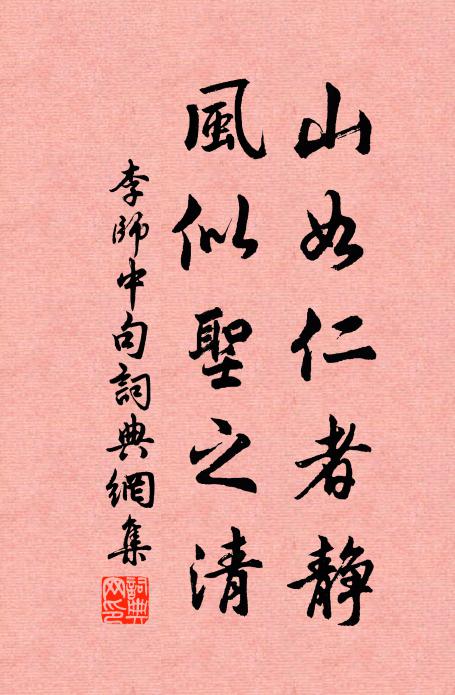 山如仁者静
風似聖之清
李師中句詞典網集
詞典網印